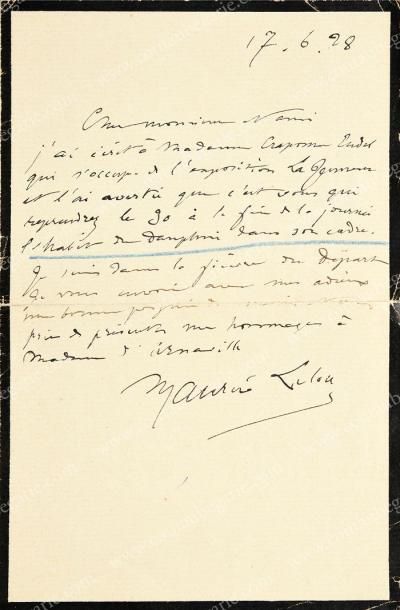 17.6.28
Cher monsieur
j'ai écrit à Madame
qui s'occupe de l'exposition
et l'ai avertie que c'est vous qui
reprendrez le 30 à la fin de la journée
l'habit du Dauphin dans son cadre.
Je suis dans la fièvre du départ
Je vous envoie avec mes adieux
une bonne poignée de main
prie de présenter mes hommages à
Madame d'
Maurice